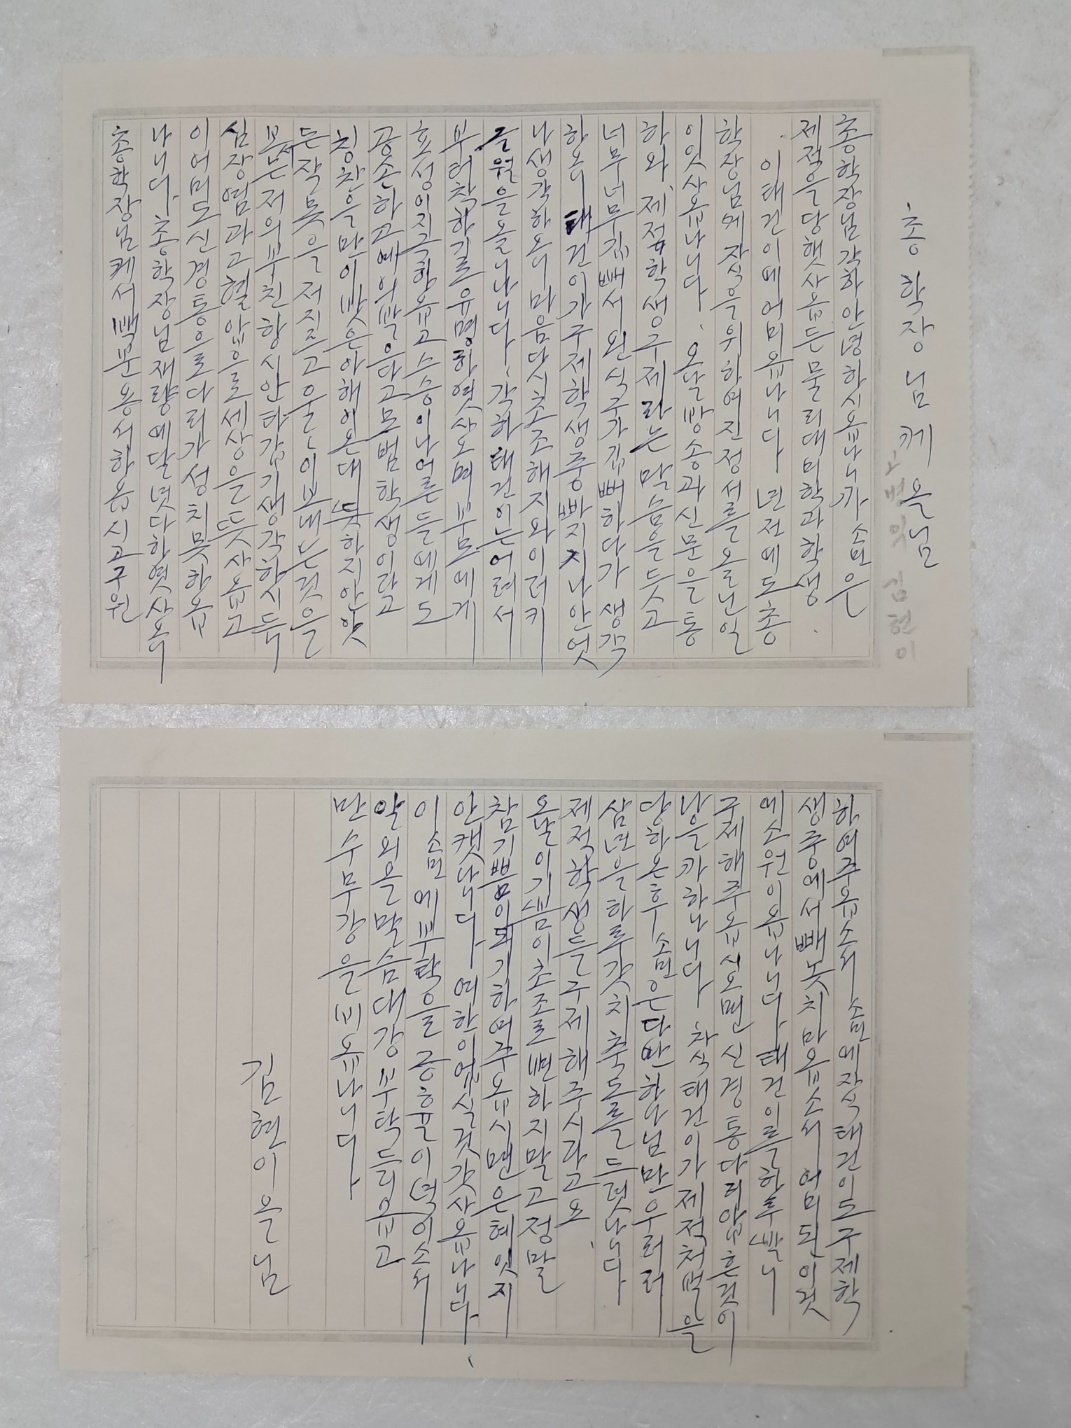 총 학장님께 올님
총학장님 각하 안녕하시옵니가 소민은
제적을 당햇사옵든 물리대 미학과 학생
이태건이에 어미옵나니다 년전에도 총
학장님께 자식을 위하여 진정서를 올닌 일
이 잇사옵나니다、오날 방송과 신문을 통
하와、제적학생 구제라는 말슴을 듯고
너무너무 깁뻐서 왼 식구가 깁뻐하다가 생각
하오니 태건이가 구제학생중 빠지지나 안엇
나 생각하오니 마음 다시 초조해지와 이러키
글월을 올나니다、각하 태건이는 어려서
부터 착하기로 유명하엿사오며 부모에게
효성이 지극하옵고 스승이나 어른들에게도
공손하고 예의 발으다고 모범학생이라고
칭찬을 만이 밧은 아해이온대 뜻하지 안앗
든 잘못을 저지르고 울 이 보내는것을
보는 저의 부친 항시 안타감기 생각하시드
심장염과 고혈압으로 세상을 뜻사옵고
이 어미도 신경통으로 다리가 성치 못하옵
나니다、총학장님 재량에 달녓다 하엿사오니
총학장님께서 백분 용서하옵시고 구원
하여주옵소서 소민에 자식 태건이도 구제학
생중에서 빼놋치 마옵소서 어미된 이것
에 소원이옵나니다 태건이를 하루 빨니
구제해주옵시오면 신경통 다리 압흔것이
낳을가 하나니다 자식 태건이가 제적처벌을
당하온후 소민은 다만 하나님만 우러러
삼년을 하루갓치 축도를 드렷나니다
제적학생들 구제해주시라고요、
오날 이 기쁨이 초조로 변하지 말고 정말
참 기쁨이 되기 하여주옵시면 은혜 잇지
안켓나니다 여한이 업실것 갓사옵나니다、
이 소민에 부탁을 긍휼이 역이소서
알외올 말슴 대강 부탁 드리옵고
만수무강을 비옵나니다
김현이 올님